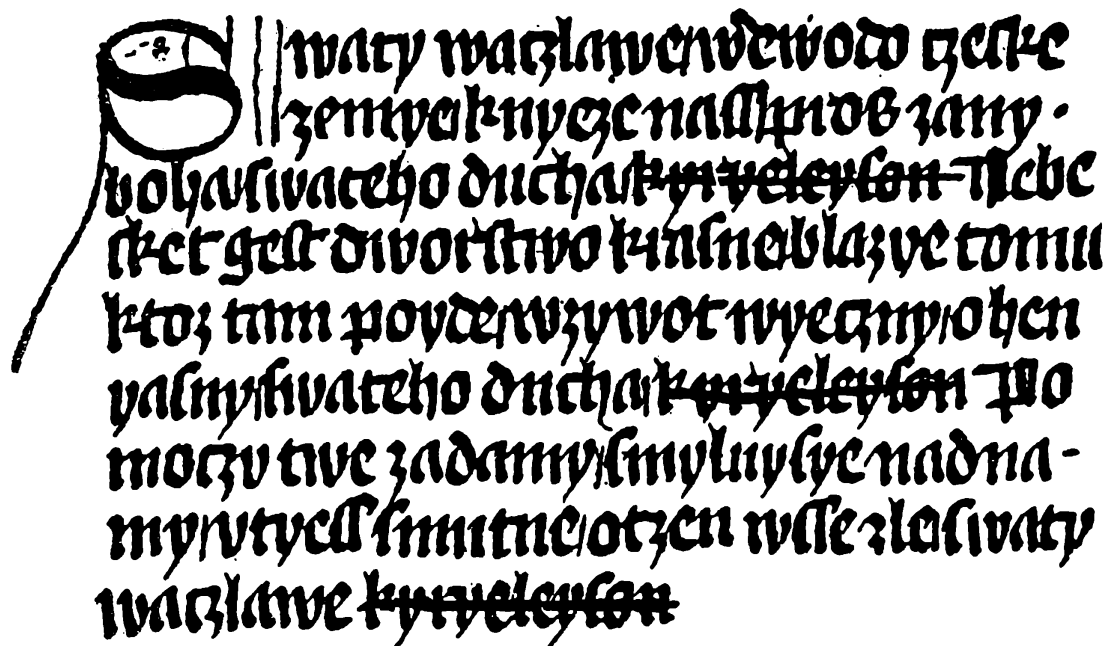 Swaty waczlawe wewodo czeske
zemye knyeze nass pros zany
boha swateho ducha kyryeleyson Nebe
sket gest dworstwo krasne blaze tomu
ktoz tam poyde wzywot wyeczny ohen
yasny swateho ducha kyryeleyson Po
moczy twe zadamy smyluy sye nad na-
my vtyess smutne otzen wsse zle swaty
waczlawe kyryeleyson